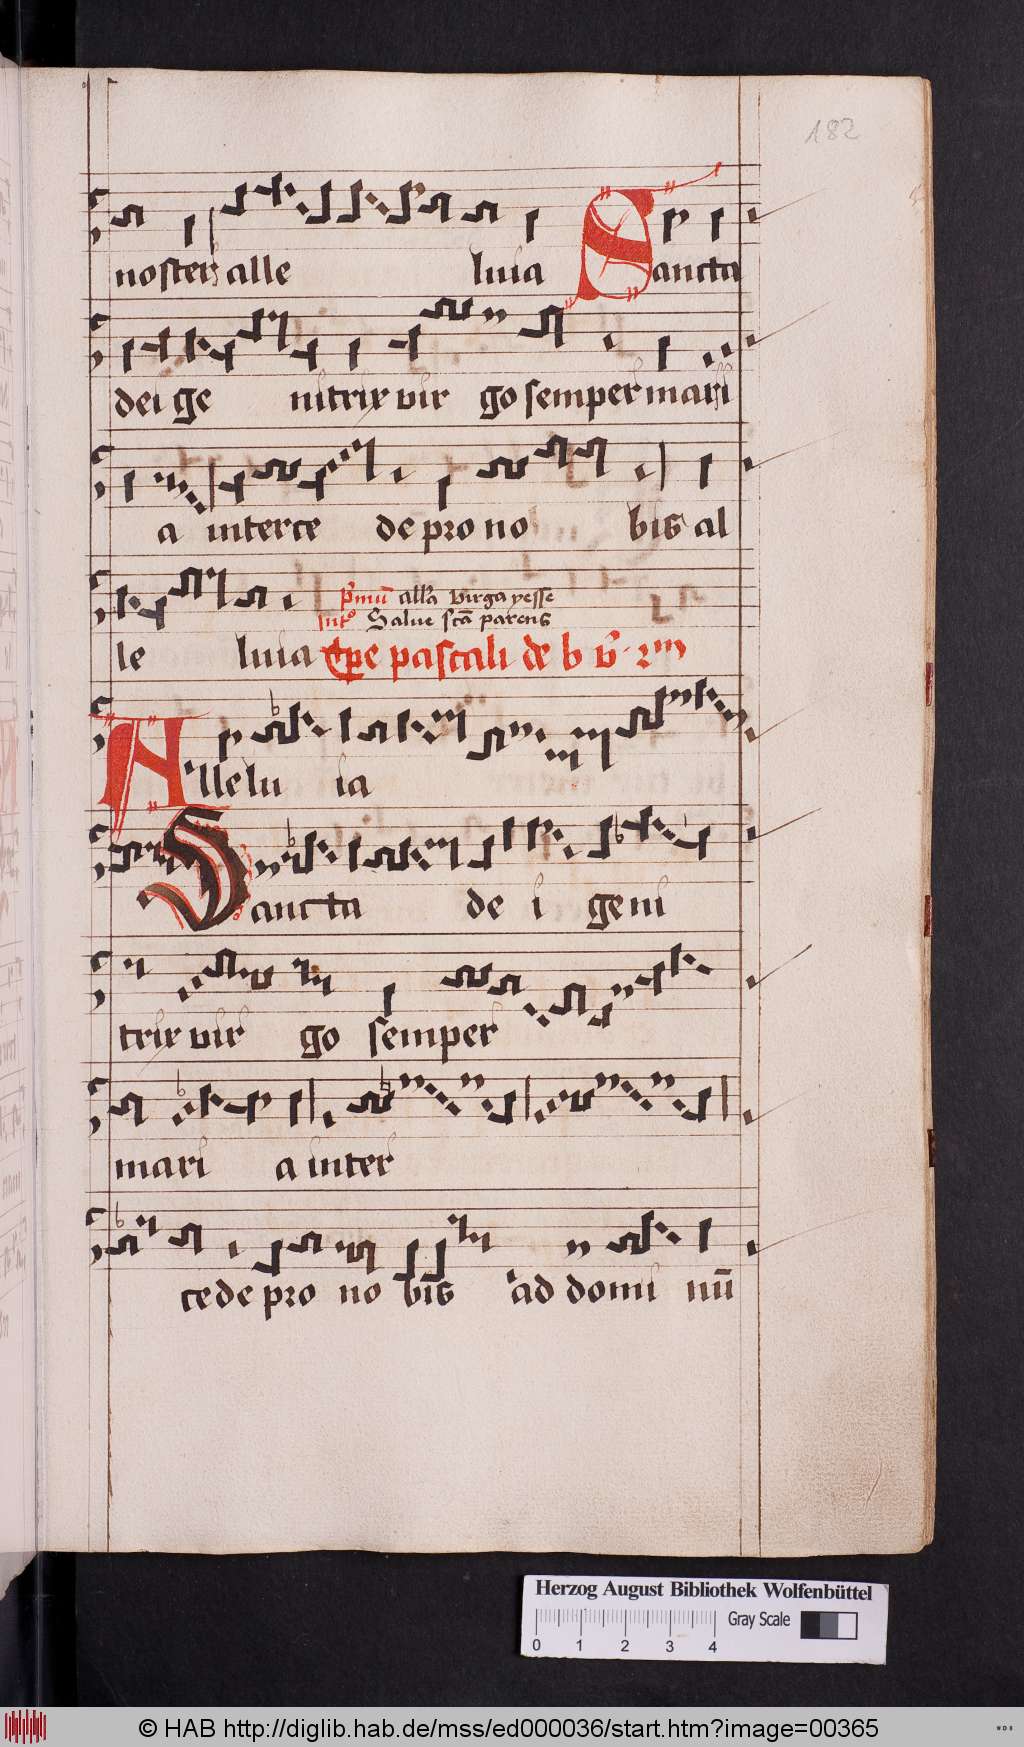 182
noster alle luia Sancta
dei ge nitrix vir go semper mari
a interce de pro no bis al
p̄mū all'a Virga yesse
Int° Salue sctā parens
le luia Tp̄e pascali de b v̄
Alle lu ia
Sancta de i geni
trix vir go semper
mari a inter
cede pro no bis ad domi nū
Herzog August Bibliothek Wolfenbüttel
Gray Scale
0 1 2 3 4
© HAB http://diglib.hab.de/mss/ed000036/start.htm?image=00365